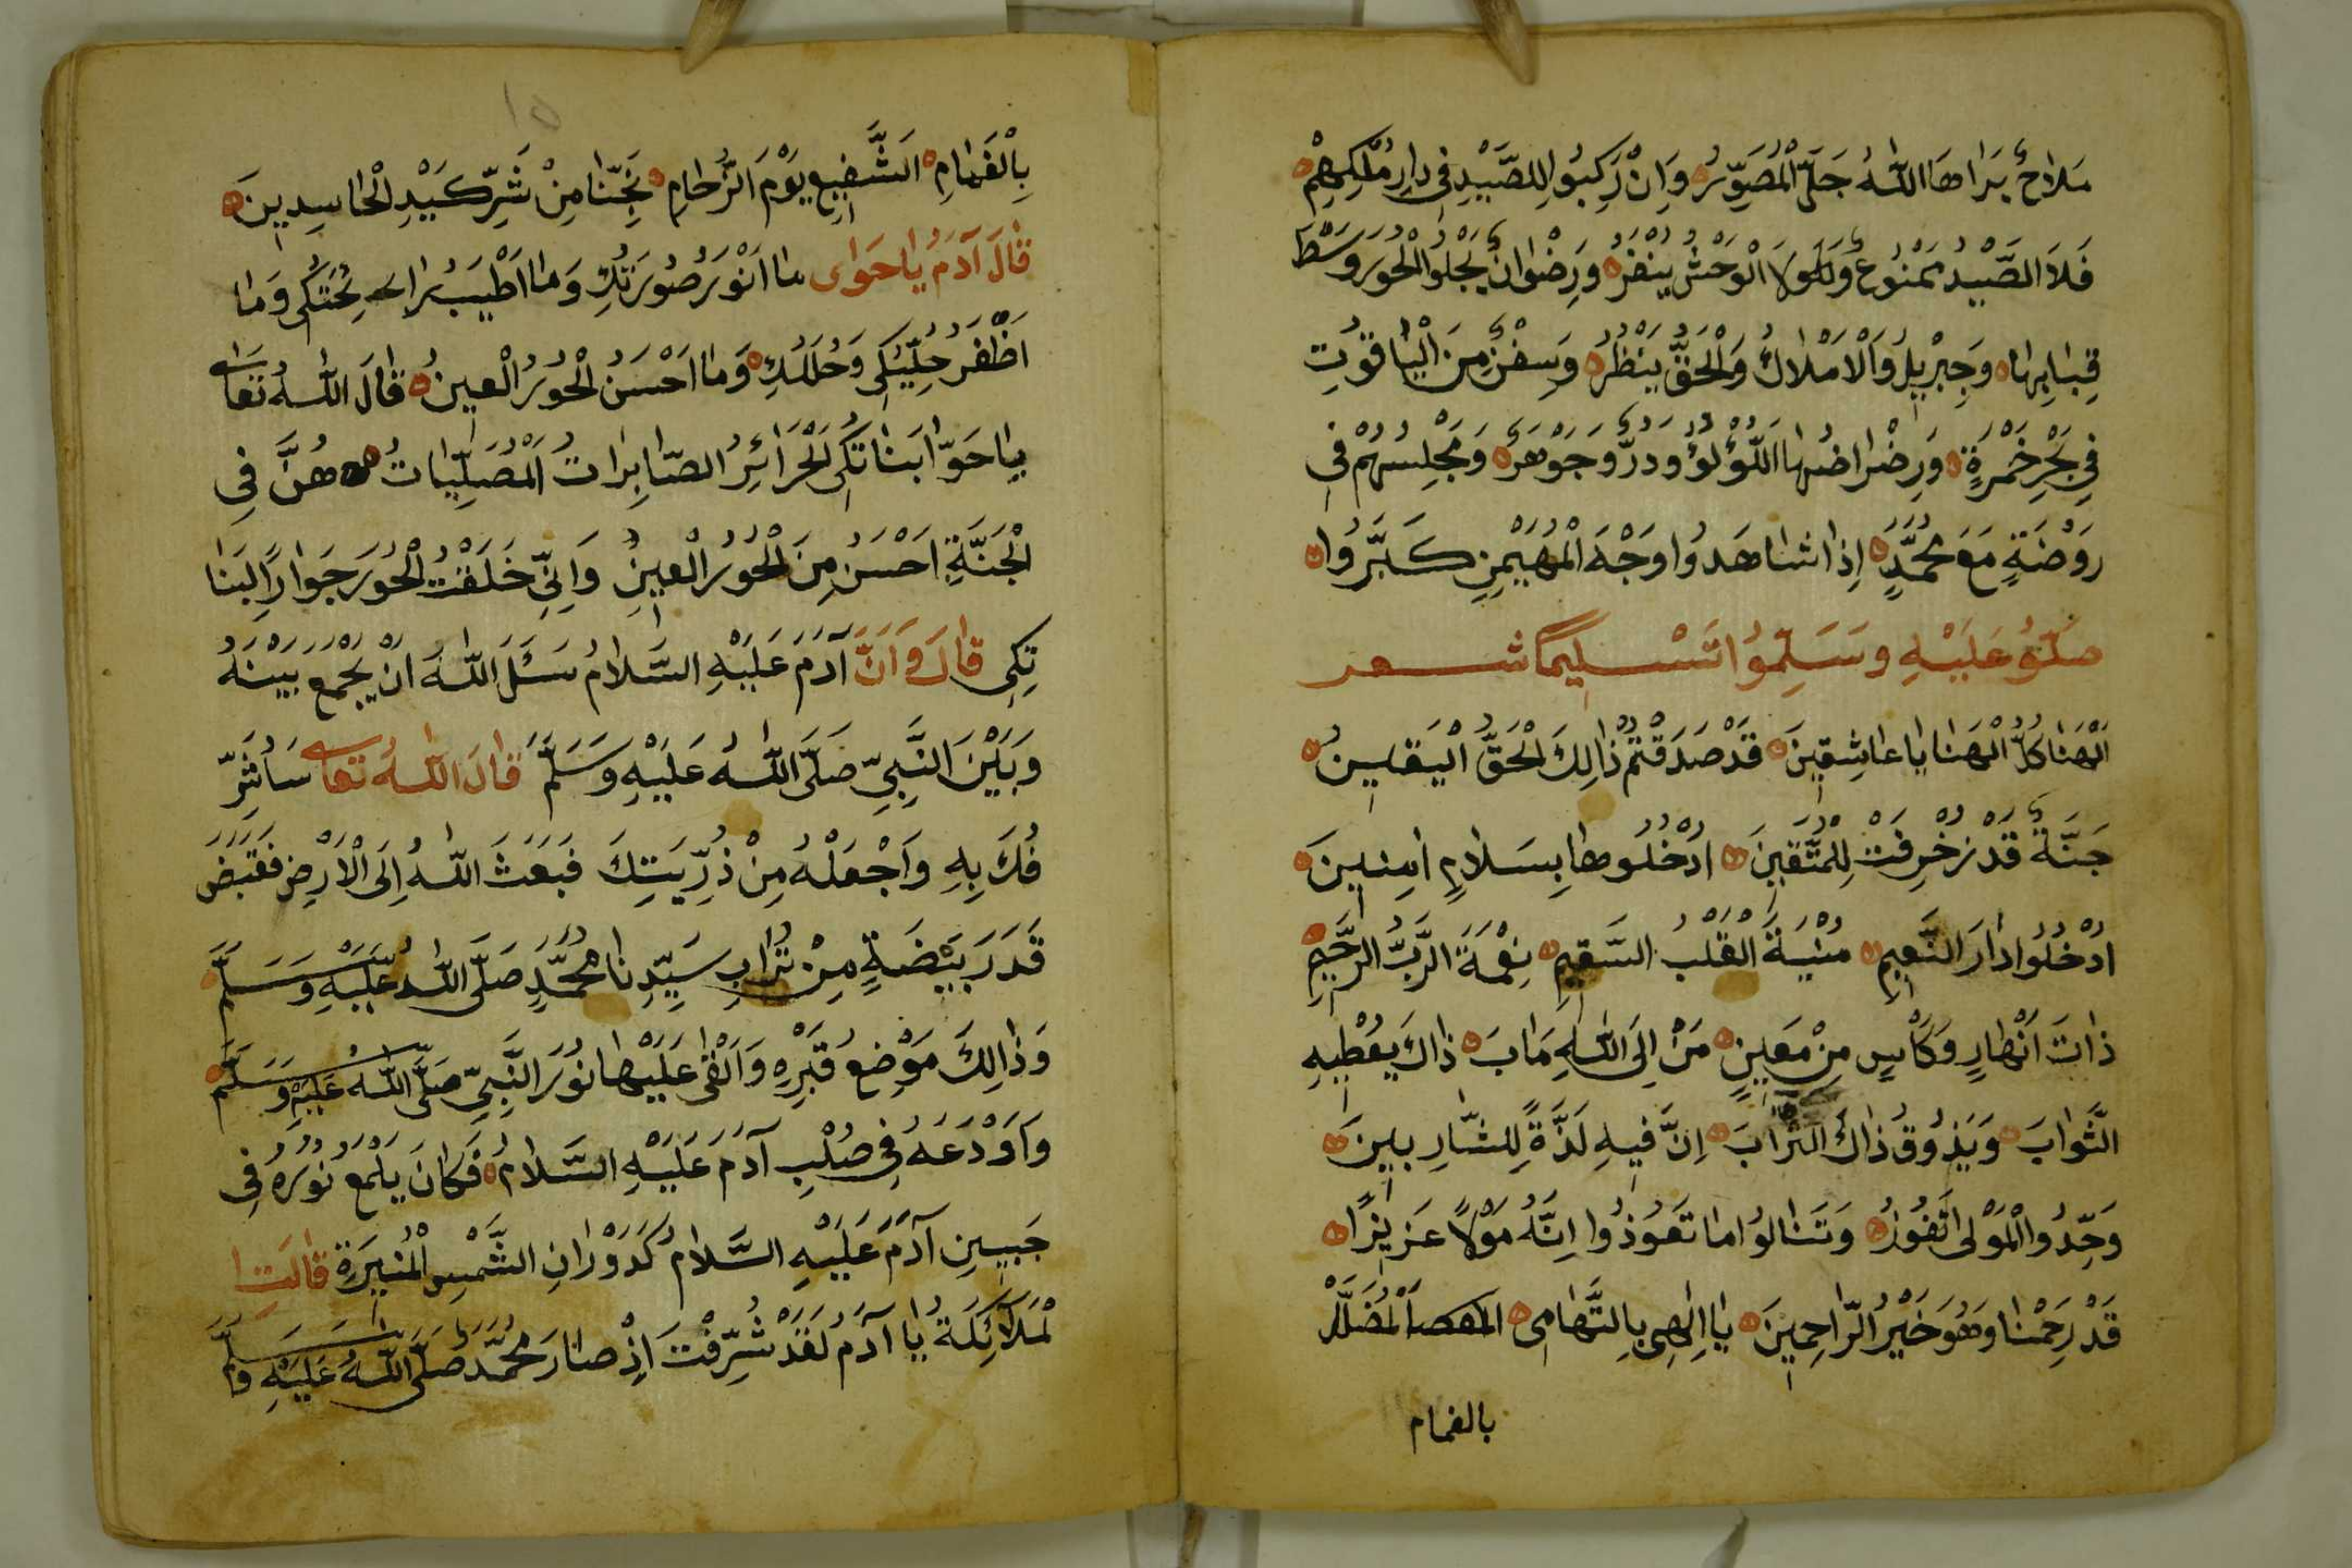 مَلَاحٌ بَرَاهَا اللّٰهُ جَلَّ الْمُصَوِّرُ وَاِنْ رَكِبُوا لِلصَّيْدِ فِي دَارِ مُلْكِهِمْ
فَلَا الصَّيْدُ مَمْنُوعٌ وَلَا الْوَحْشُ يَنْفِرُ وَرِضْوَانُ يَجْلُوا الْحُورَ وَسْطَ
قِبَابِهَا وَجِبْرِيلُ وَالْاَمْلَاكُ وَالْحَقُّ يَنْظُرُ وَسِفْنٌ مِنَ الْيَاقُوتِ
فِي بَحْرِ خَمْرَةٍ وَرَضْرَاضُهَا اللُّؤْلُؤُ وَدُرٌّ وَجَوْهَرٌ وَمَجْلِسُهُمْ فِي
رَوْضَةٍ مَعَ مُحَمَّدٍ اِذَا شَاهَدُوا وَجْهَ الْمُهَيْمِنِ كَبَّرُوا
صَلُّوُ عَلَيْهِ وَسَلِّمُوا تَسْلِيمًا شعر
اَلْهَنَا كُلُّ الْهَنَا يَا عَاشِقِينَ قَدْ صَدَقْتُمْ ذَالِكَ الْحَقُّ الْيَقِينُ
جَنَّةٌ قَدْ زُخْرِفَتْ لِلْمُتَّقِينَ اُدْخُلُوهَا بِسَلَامٍ اٰمِنِينَ
اُدْخُلُوا دَارَ النَّعِيمِ مُنْيَةَ الْقَلْبُ السَّقِيمِ نِعْمَةَ الرَّبُّ الرَّحِيمِ
ذَاتَ اَنْهَارٍ وَكَأْسٍ مِنْ مَعِينٍ مَنْ اِلَى اللّٰهِ مَابَ ذَاكَ يُعْطِيهِ
الثَّوَابَ وَيَذُوقُ ذَاكَ الشَّرَابَ اِنَّ فِيهِ لَذَّةً لِلشَّارِبِينَ
وَحِّدُوا الْمَوْلَى تَفُوزُ وَتَنَالُوا مَا تَعَوَّذُوا اِنَّهُ مَوْلًا عَزِيزًا
قَدْ رَحِمْنَا وَهُوَ خَيْرُ الرَّاحِمِينَ يَا اِلٰهِى بِالتَّهَامِى الْمُضَلَّلْ
بالغمام
١٥
بِالْغَمَامِ اَلشَّفِيعِ يَوْمَ الزُّحَامِ نَجِّنَا مِنْ شَرِّ كَيْدِ الْحَاسِدِينَ
قَالَ آدَمُ يَا حَوَاى مَا اَنْوَرَ صُورَتُكِ وَمَا اَطْيَبُ رَائِحَتُكِى وَمَا
اَظْفَرَ حُلِّيُكِى وَحُلَلُكِ وَمَا اَحْسَنُ الْحُورُ الْعِينُ قَالَ اللّٰهُ تَعَالَى
يَا حَوَّا بَنَاتُكِى الْحَرَائِرُ الصَّابِرَاتُ الْمُصَلِّيَاتُ هُنَّ فِي
الْجَنَّةِ اَحْسَنُ مِنَ الْحُورُ الْعِينُ وَاِنِّي خَلَقْتُ الْحُورَ جَوَارًا لِبَنَا
تِكِى قَالَ وَاَنَّ آدَمَ عَلَيْهِ السَّلَامُ سَئَلَ اللّٰهَ اَنْ يَجْمَعَ بَيْنَهُ
وَبَيْنَ النَّبِيِّ صَلَّى اللّٰهُ عَلَيْهِ وَسَلَّمَ قَالَ اللّٰهُ تَعَالَى سَاُشَرِّ
فُكَ بِهِ وَاَجْعَلْهُ مِنْ ذُرِّيَتِكَ فَبَعَثَ اللّٰهُ اِلَى الْاَرْضِ فَقَبَضَ
قَدَرَ بَيْضَةٍ مِنْ تُرَابِ سَيِّدِنَا مُحَمَّدٍ صَلَّى اللّٰهُ عَلَيْهِ وَسَلَّمَ
وَذَالِكَ مَوْضِعُ قَبْرِهِ وَاَلْقَى عَلَيْهَا نُورَ النَّبِيِّ صَلَّى اللّٰهُ عَلَيْهِ وَسَلَّمَ
وَاَوْدَعَهُ فِي صُلْبِ آدَمَ عَلَيْهِ السَّلَامُ فَكَانَ يَلْمَعُ نُورُهُ فِي
جَبِينِ آدَمَ عَلَيْهِ السَّلَامُ كَدَوْرَانِ الشَّمْسِ الْمُنِيرَةِ قَالَتِ ا
لْمَلَائِكَةُ يَا آدَمُ لَقَدْ شُرِّفْتَ اِذْ صَارَ مُحَمَّدٌ صَلَّى اللّٰهُ عَلَيْهِ وَسَلَّمَ